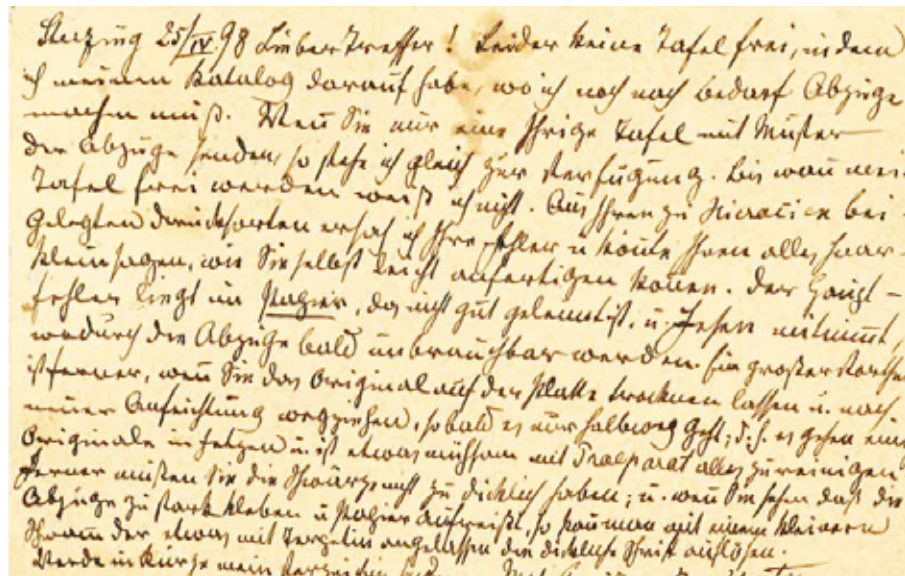 Sterzing 25/IV. 98 Lieber Treffer! Leider keine Tafel frei, indem
ich meinen Katalog darauf habe, wo ich noch nach bedarf Abzüge
machen muß. Wenn Sie mir eine Ihrige Tafel mit Muster
der Abzüge senden, so stehe ich gleich zur Verfügung. Bis wann mei-
Tafel frei werden weiß ich nicht. Aus Ihren zu Hieracien bei-
gelegten Drucksorten ersah ich Ihre Fehler u könnte Ihnen alles haar-
klein sagen, wie Sie selbst leicht anfertigen können. Der Haupt-
fehler liegt im Papier, das nicht gut geleimt ist, u. Fasern mitnimmt,
wodurch die Abzüge bald unbrauchbar werden. Ein großer Vortheil
ist ferner, wenn Sie das Original auf der Platte trocknen lassen u. nach
neuer Anfeichtung wegziehen, sobald es nur halbweg geht; d. h. es gehen eine
Originale in Fetzen u. ist etwas mühsam mit Praeparat alles zu reinigen
Ferner müßen Sie die Schwärze nicht zu dicklich haben; u. wenn Sie sehen daß die
Abzüge zu stark kleben u Papier aufreißt, so kann man mit einem kleinern
Schwamm der etwas mit Terpetin angelassen die dickliche Schrift auflösen.
Werde in Kürze mein Verzeichn